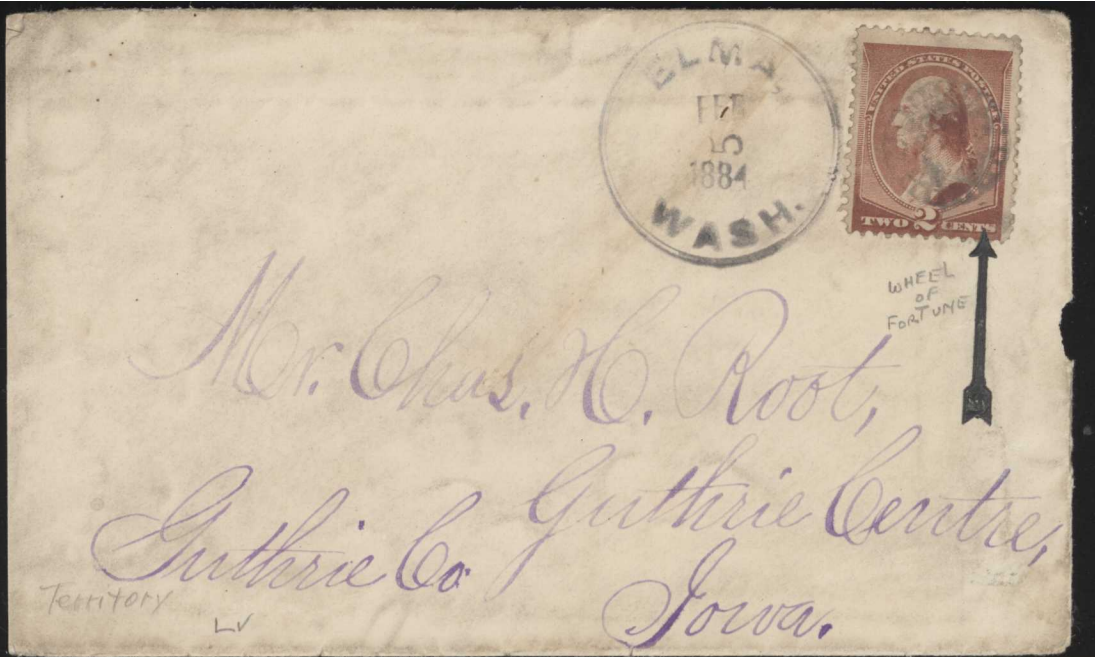 ELMA,
FEB
5
1884
WASH.
UNITED STATES POSTAGE
TWO 2 CENTS
WHEEL
OF
FORTUNE
Mr. Chas. H. Root,
Guthrie Centre,
Guthrie Co
Iowa.
Territory
LV